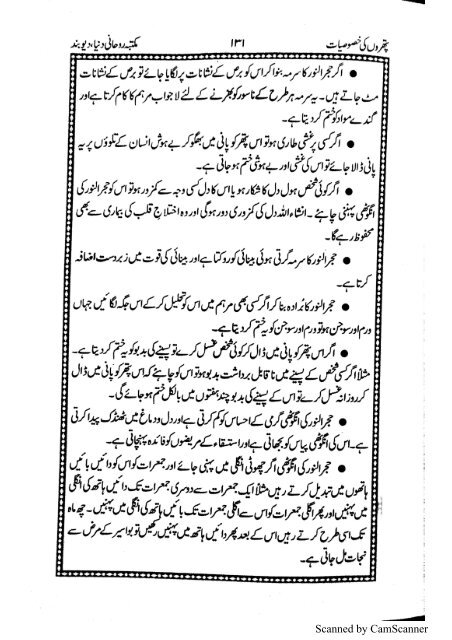 پتھروں کی خصوصیات ۱۳۱ مکتبہ روحانی دنیا، دیوبند
● اگر حجر النور کا سرمہ بنوا کر اس کو برص کے نشانات پر لگایا جائے تو برص کے نشانات
مٹ جاتے ہیں۔ یہ سرمہ ہر طرح کے ناسور کو بھرنے کے لئے لاجواب مرہم کا کام کرتا ہے اور
گندے مواد کو ختم کر دیتا ہے۔
● اگر کسی پر غشی طاری ہو تو اس پتھر کو پانی میں بھگو کر بے ہوش انسان کے تلوؤں پر یہ
پانی ڈالا جائے تو اس کی غشی اور بے ہوشی ختم ہو جاتی ہے۔
● اگر کوئی شخص ہول دل کا شکار ہو یا اس کا دل کسی وجہ سے کمزور ہو تو اس کو حجر النور کی
انگوٹھی پہننی چاہئے۔ انشاء اللہ دل کی کمزوری دور ہوگی اور وہ اختلاج قلب کی بیماری سے بھی
محفوظ رہے گا۔
● حجر النور کا سرمہ گرتی ہوئی بینائی کو روکتا ہے اور بینائی کی قوت میں زبردست اضافہ
کرتا ہے۔
● حجر النور کا بُرادہ بنا کر اگر کسی بھی مرہم میں اس کو تحلیل کر کے اس جگہ لگائیں جہاں
ورم اور سوجن ہو تو ورم اور سوجن کو یہ ختم کر دیتا ہے۔
● اگر اس پتھر کو پانی میں ڈال کر کوئی شخص غسل کرے تو پسینے کی بدبو کو یہ ختم کر دیتا ہے۔
مثلاً اگر کسی شخص کے پسینے میں ناقابل برداشت بدبو ہو تو اس کو چاہئے کہ اس پتھر کو پانی میں ڈال
کر روزانہ غسل کرے تو اس کے پسینے کی بدبو چند ہفتوں میں بالکل ختم ہو جائے گی۔
● حجر النور کی انگوٹھی گرمی کے احساس کو کم کرتی ہے اور دل و دماغ میں ٹھنڈک پیدا کرتی
ہے۔ اس کی انگوٹھی پیاس کو بجھاتی ہے اور استسقاء کے مریضوں کو فائدہ پہنچاتی ہے۔
● حجر النور کی انگوٹھی اگر چھوٹی انگلی میں پہنی جائے اور جمعرات کو اس کو دائیں بائیں
ہاتھوں میں تبدیل کرتے رہیں مثلاً ایک جمعرات سے دوسری جمعرات تک دائیں ہاتھ کی انگلی
میں پہنیں اور پھر اگلی جمعرات کو اس سے اگلی جمعرات تک بائیں ہاتھ کی انگلی میں پہنیں۔ چھ ماہ
تک اسی طرح کرتے رہیں اس کے بعد پھر دائیں ہاتھ میں پہنیں رکھیں تو بواسیر کے مرض سے
نجات مل جاتی ہے۔
Scanned by CamScanner